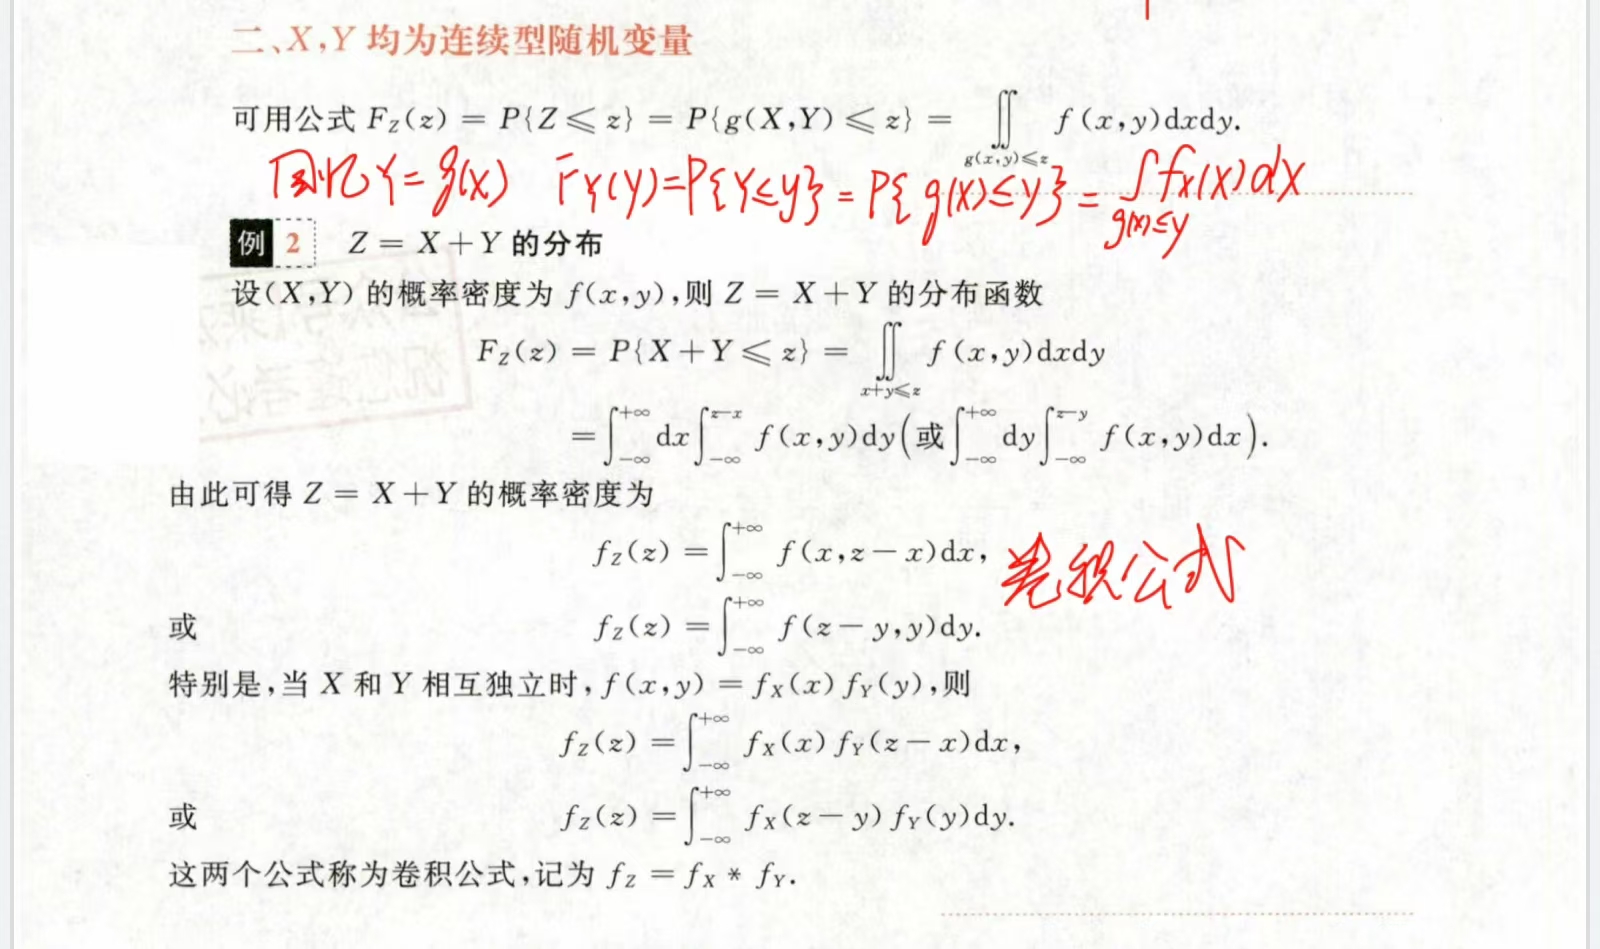 二、X,Y 均为连续型随机变量
可用公式 F_Z(z) = P{Z ⩽ z} = P{g(X,Y) ⩽ z} = ∬_{g(x,y)⩽z} f(x,y)dxdy.
回忆 Y=g(x) F_Y(y)=P{Y≤y}=P{g(X)≤y}=∫_{g(x)≤y} f_X(x)dx
例 2 Z = X+Y 的分布
设(X,Y) 的概率密度为 f(x,y),则 Z = X+Y 的分布函数
F_Z(z) = P{X+Y ⩽ z} = ∬_{x+y⩽z} f(x,y)dxdy
= ∫_{-∞}^{+∞} dx ∫_{-∞}^{z-x} f(x,y)dy (或 ∫_{-∞}^{+∞} dy ∫_{-∞}^{z-y} f(x,y)dx).
由此可得 Z = X+Y 的概率密度为
f_Z(z) = ∫_{-∞}^{+∞} f(x,z-x)dx, 卷积公式
或 f_Z(z) = ∫_{-∞}^{+∞} f(z-y,y)dy.
特别是,当 X 和 Y 相互独立时,f(x,y) = f_X(x)f_Y(y),则
f_Z(z) = ∫_{-∞}^{+∞} f_X(x)f_Y(z-x)dx,
或 f_Z(z) = ∫_{-∞}^{+∞} f_X(z-y)f_Y(y)dy.
这两个公式称为卷积公式,记为 f_Z = f_X * f_Y.